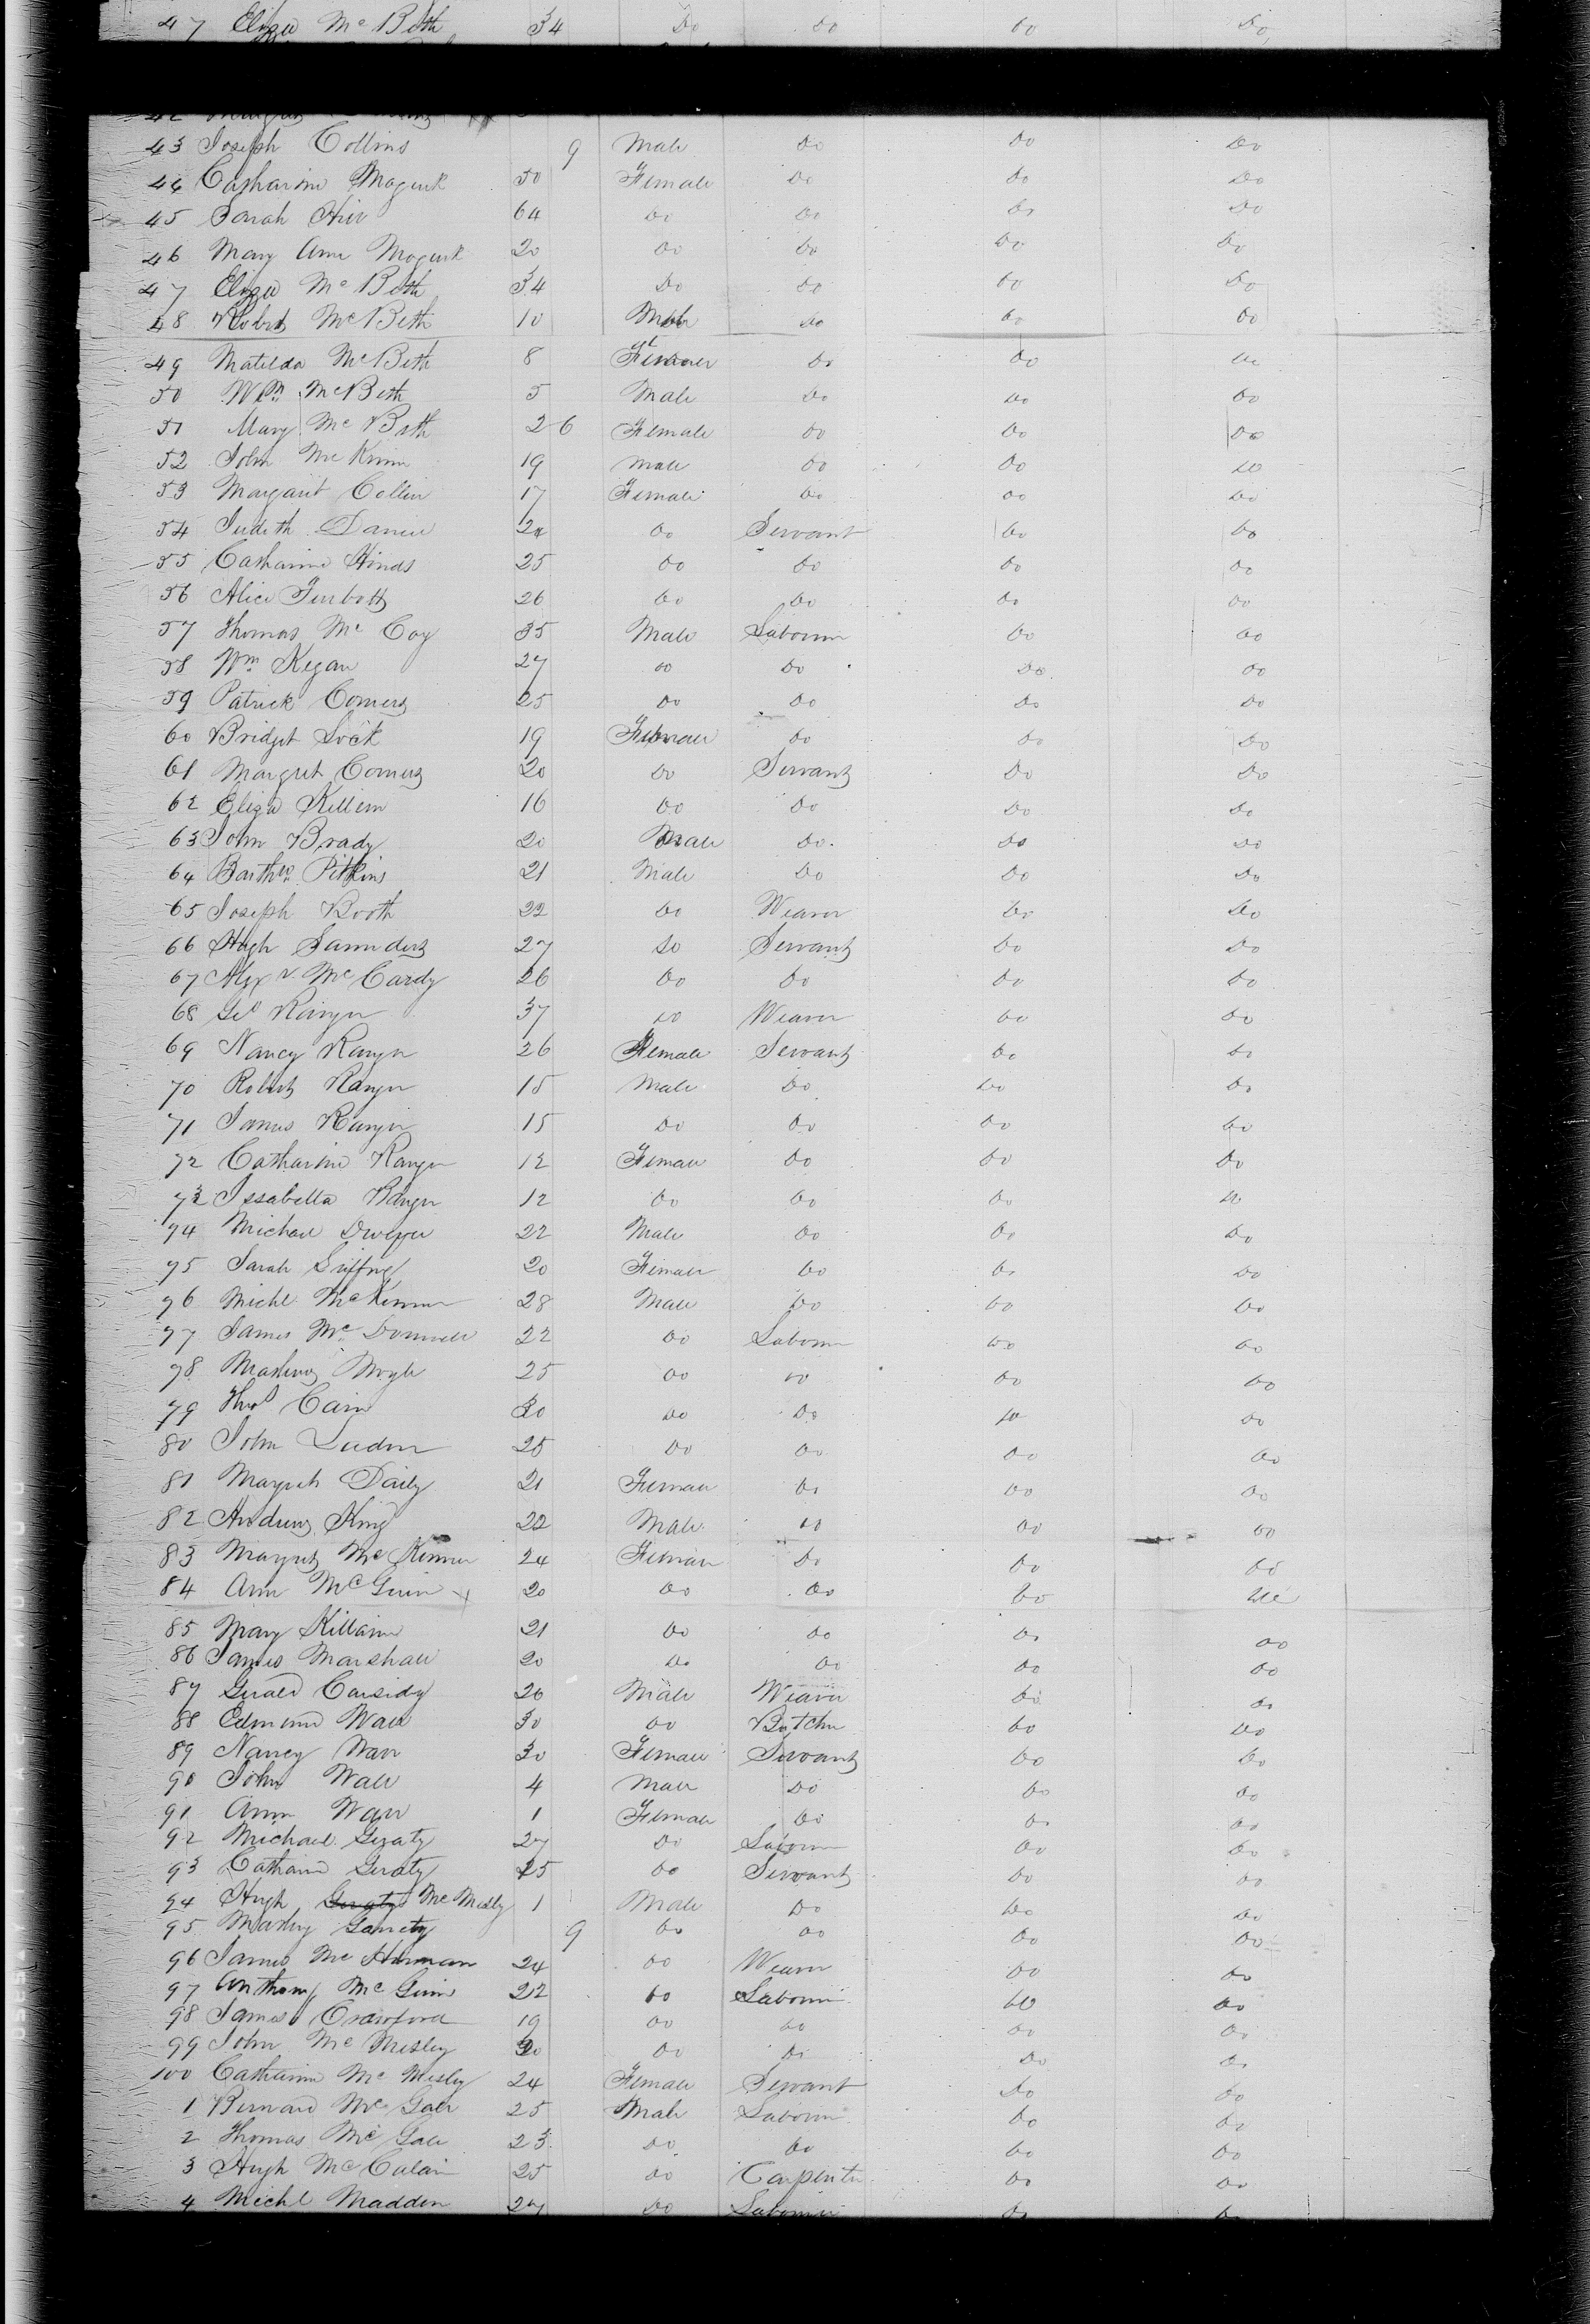 47 Eliza Mc Beth 34 Do Do Do Do
43 Joseph Collins 9 Male Do Do Do
44 Catharine Magurk 50 Female Do Do Do
45 Sarah 64 Do Do Do Do
46 Mary Ann Magurk 20 Do Do Do Do
47 Eliza Mc Beth 34 Do Do Do Do
48 Robert McBeth 10 Male Do Do Do
49 Matilda McBeth 8 Female Do Do Do
50 Wm McBeth 5 Male Do Do Do
51 Mary Mc Beth 26 Female Do Do Do
52 John Mc 19 Male Do Do Do
53 Margaret Collin 17 Female Do Do Do
54 Judith 22 Do Servant Do Do
55 Catharine Hinds 25 Do Do Do Do
56 Alice 26 Do Do Do Do
57 Thomas Mc Coy 35 Male Laborer Do Do
58 Wm Kegan 27 Do Do Do Do
59 Patrick Comers 25 Do Do Do Do
60 Bridget Lock 19 Female Do Do Do
61 Margret Comers 20 Do Servant Do Do
62 Eliza 16 Do Do Do Do
63 John Brady 20 Male Do Do Do
64 Barthw Pitkins 21 Male Do Do Do
65 Joseph Booth 22 Do Weaver Do Do
66 Hugh Saunders 27 Do Servant Do Do
67 Alexr McCardy 26 Do Do Do Do
68 Geo Ranger 37 Do Weaver Do Do
69 Nancy Ranger 26 Female Servant Do Do
70 Robert Ranger 15 Male Do Do Do
71 James Ranger 15 Do Do Do Do
72 Catharine Ranger 12 Female Do Do Do
73 Issabella Ranger 12 Do Do Do Do
74 Michael 22 Male Do Do Do
75 Sarah 20 Female Do Do Do
76 Michl McKenner 28 Male Do Do Do
77 James Mc Donnell 22 Do Laborer Do Do
78 25 Do Do Do Do
79 Thos Cain 30 Do Do Do Do
80 John 25 Do Do Do Do
81 Margret Daily 21 Female Do Do Do
82 Andrew King 22 Male Do Do Do
83 Margret McKenner 24 Female Do Do Do
84 Ann McGuin 20 Do Do Do Do
85 Mary 21 Do Do Do Do
86 James Marshall 20 Do Do Do Do
87 Gerald Cassidy 20 Male Weaver Do Do
88 Edmund Wall 30 Do Butcher Do Do
89 Nancy Wall 30 Female Servant Do Do
90 John Wall 4 Male Do Do Do
91 Ann Wall 1 Female Do Do Do
92 Michael Geraty 27 Do Laborer Do Do
93 Catharine Geraty 25 Do Servant Do Do
94 Hugh Geraty Mc Misley 1 Male Do Do Do
95 9 Do Do Do Do
96 James Mc 24 Do Weaver Do Do
97 Anthony McGuin 22 Do Laborer Do Do
98 James Crawford 19 Do Do Do Do
99 John Mc Misley 30 Do Do Do Do
100 Catharine Mc Misley 24 Female Servant Do Do
1 Bernard McGall 25 Male Laborer Do Do
2 Thomas McGall 23 Do Do Do Do
3 Hugh McCulain 25 Do Carpenter Do Do
4 Michl Madden 27 Do Laborer Do Do